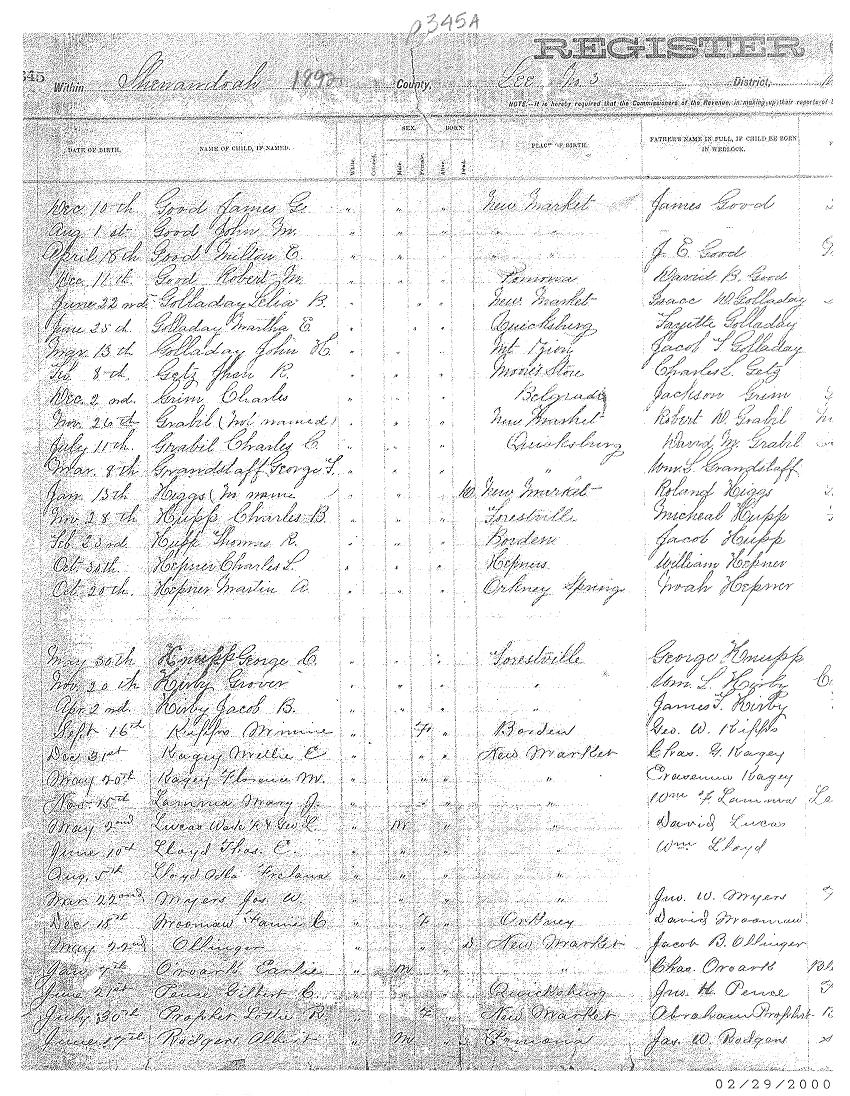 345A
REGISTER
345 Within Shenandoah 1892 County, Lee No 3 District,
NOTE.—It is hereby required that the Commissioners of the Revenue, in making up their reports of
SEX. BORN.
DATE OF BIRTH. NAME OF CHILD, IF NAMED. White. Colored. Male. Female. Alive. Dead. PLACE OF BIRTH. FATHER'S NAME IN FULL, IF CHILD BE BORN IN WEDLOCK.
Dec. 10th Good James G. " " " New Market James Good
Aug 1st Good John M. " " " " "
April 18th Good Milton E. " " " " " J. E. Good
Dec. 11th Good Robert M. " " " Pomona David B. Good
June 22nd Golladay Lelia B. " " " New Market Isaac W Golladay
June 25th Golladay Martha E. " " " Quicksburg Layette Golladay
Mar. 13th Golladay John H. " " " Mt Zion Jacob S. Golladay
Feb. 8th Getz R. " " " Moores Store Charles L. Getz
Dec. 2nd Grim Charles " " " Belgrade Jackson Grim
Nov. 26th Grabil (Not named) " " " New Market Robert W. Grabil
July 11th Grabil Charles C. " " " Quicksburg David M. Grabil
Mar. 8th Grandstaff George T. " " " " Wm. S. Grandstaff
Jan. 13th Higgs (No name " " New Market Roland Higgs
Nov. 28th Hupp Charles B. " " " Forestville Micheal Hupp
Feb 23rd Hupp Thomas R. " " " Borden Jacob Hupp
Oct 30th Hepner Charles L. " " " Hepners William Hepner
Oct. 20th Hepner Martin A. " " " Orkney Springs Noah Hepner
May 30th Knupp George C. " " " Forestville George Knupp
Nov. 20th Kirby Grover " " " " Wm. L. Kirby
Apr 2nd. Kirby Jacob B. " " " " James T. Kirby
Sept 16th Kipps Minnie " F " Borden Geo. W. Kipps
Dec 31st Kagey Mellie E " " " New Market Chas. G. Kagey
May 20th Kagey Florence M. " " " " Erasemus Kagey
Nov. 15th Lamma Mary J. " " " " Wm F Lamma Le
May 2nd Lucas Wade H & Geo L. " M " " David Lucas
June 10th Lloyd Thos. E. " " " " Wm Lloyd
Aug. 5th Lloyd Ireland " " "
Mar 22nd Myers Jos. W. " " " Jno. W. Myers
Dec 15th Moomaw Fannie C " F " Orkney David Moomaw
May 22nd Ollinger " " New Market Jacob B. Ollinger
Jan 7th Oroark Earlie " M " " Chas. Oroark
June 21st Pence Gilbert C. " " " Quicksburg Jno. H. Pence
July 30th Prophet Lottie R " F " New Market Abraham Prophet
June 17th Rodgers Albert " M " Pomona Jas. W. Rodgers
02/29/2000